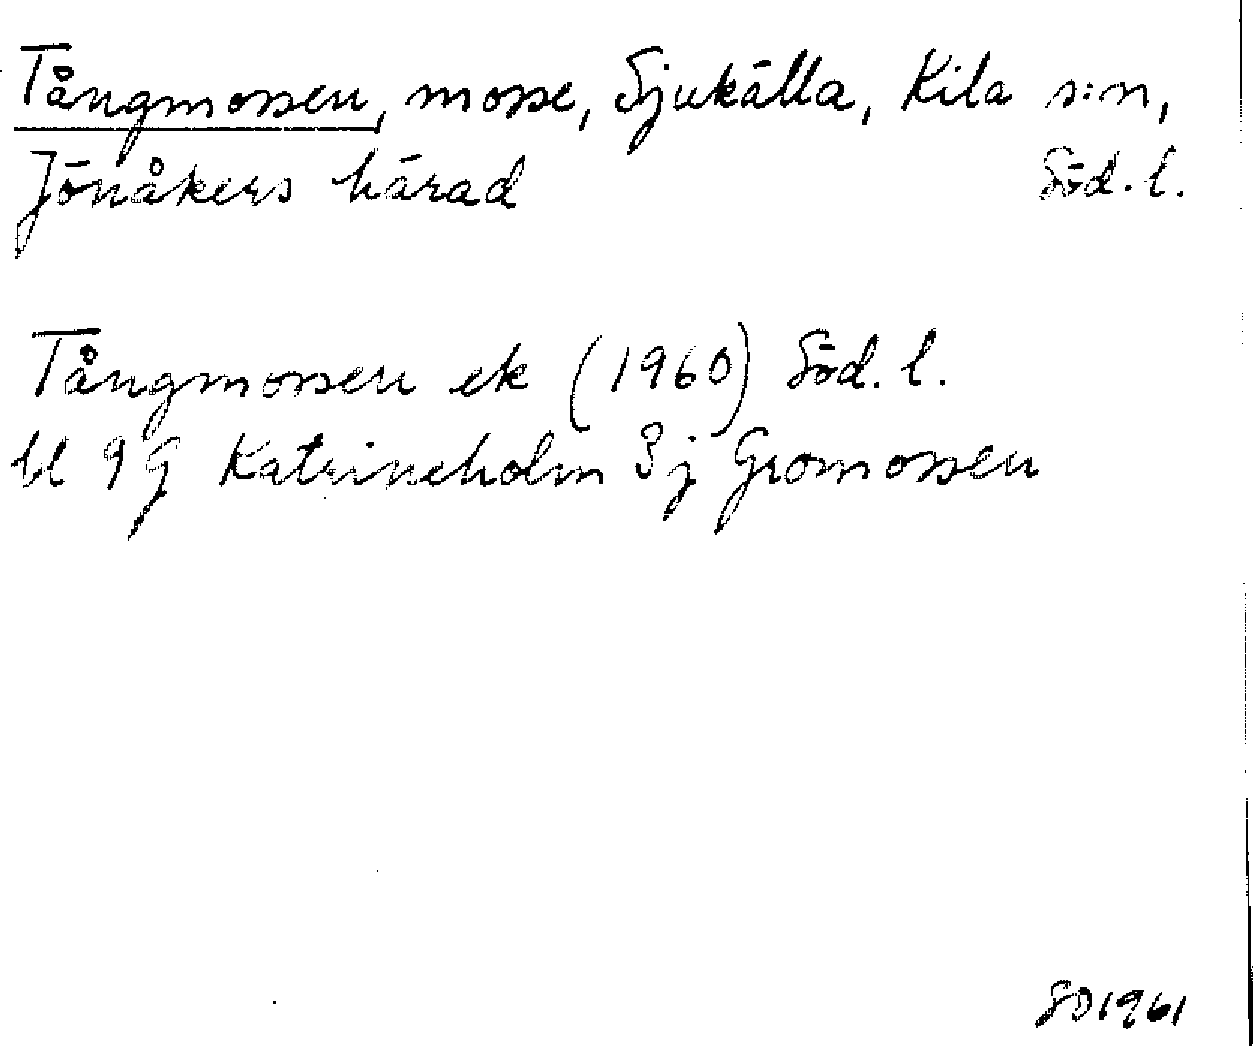 Tångmossen, mosse, Sjukälla, Kila s:n,
Jönåkers härad Söd. l.
Tångmossen ek (1960) Söd. l.
bl 9 G Katrineholm 3 j Gromossen
SD 1961